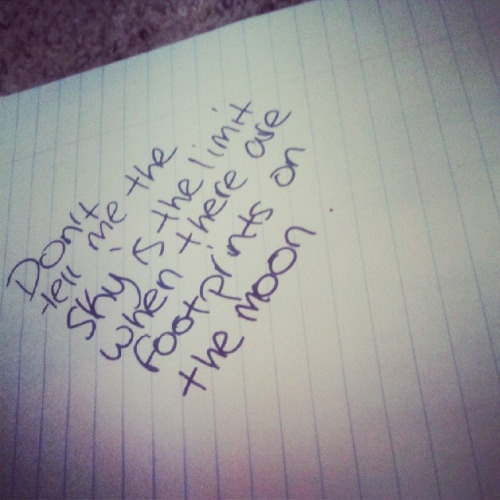 Don't
tell me the
sky is the limit
when there are
footprints on
the moon